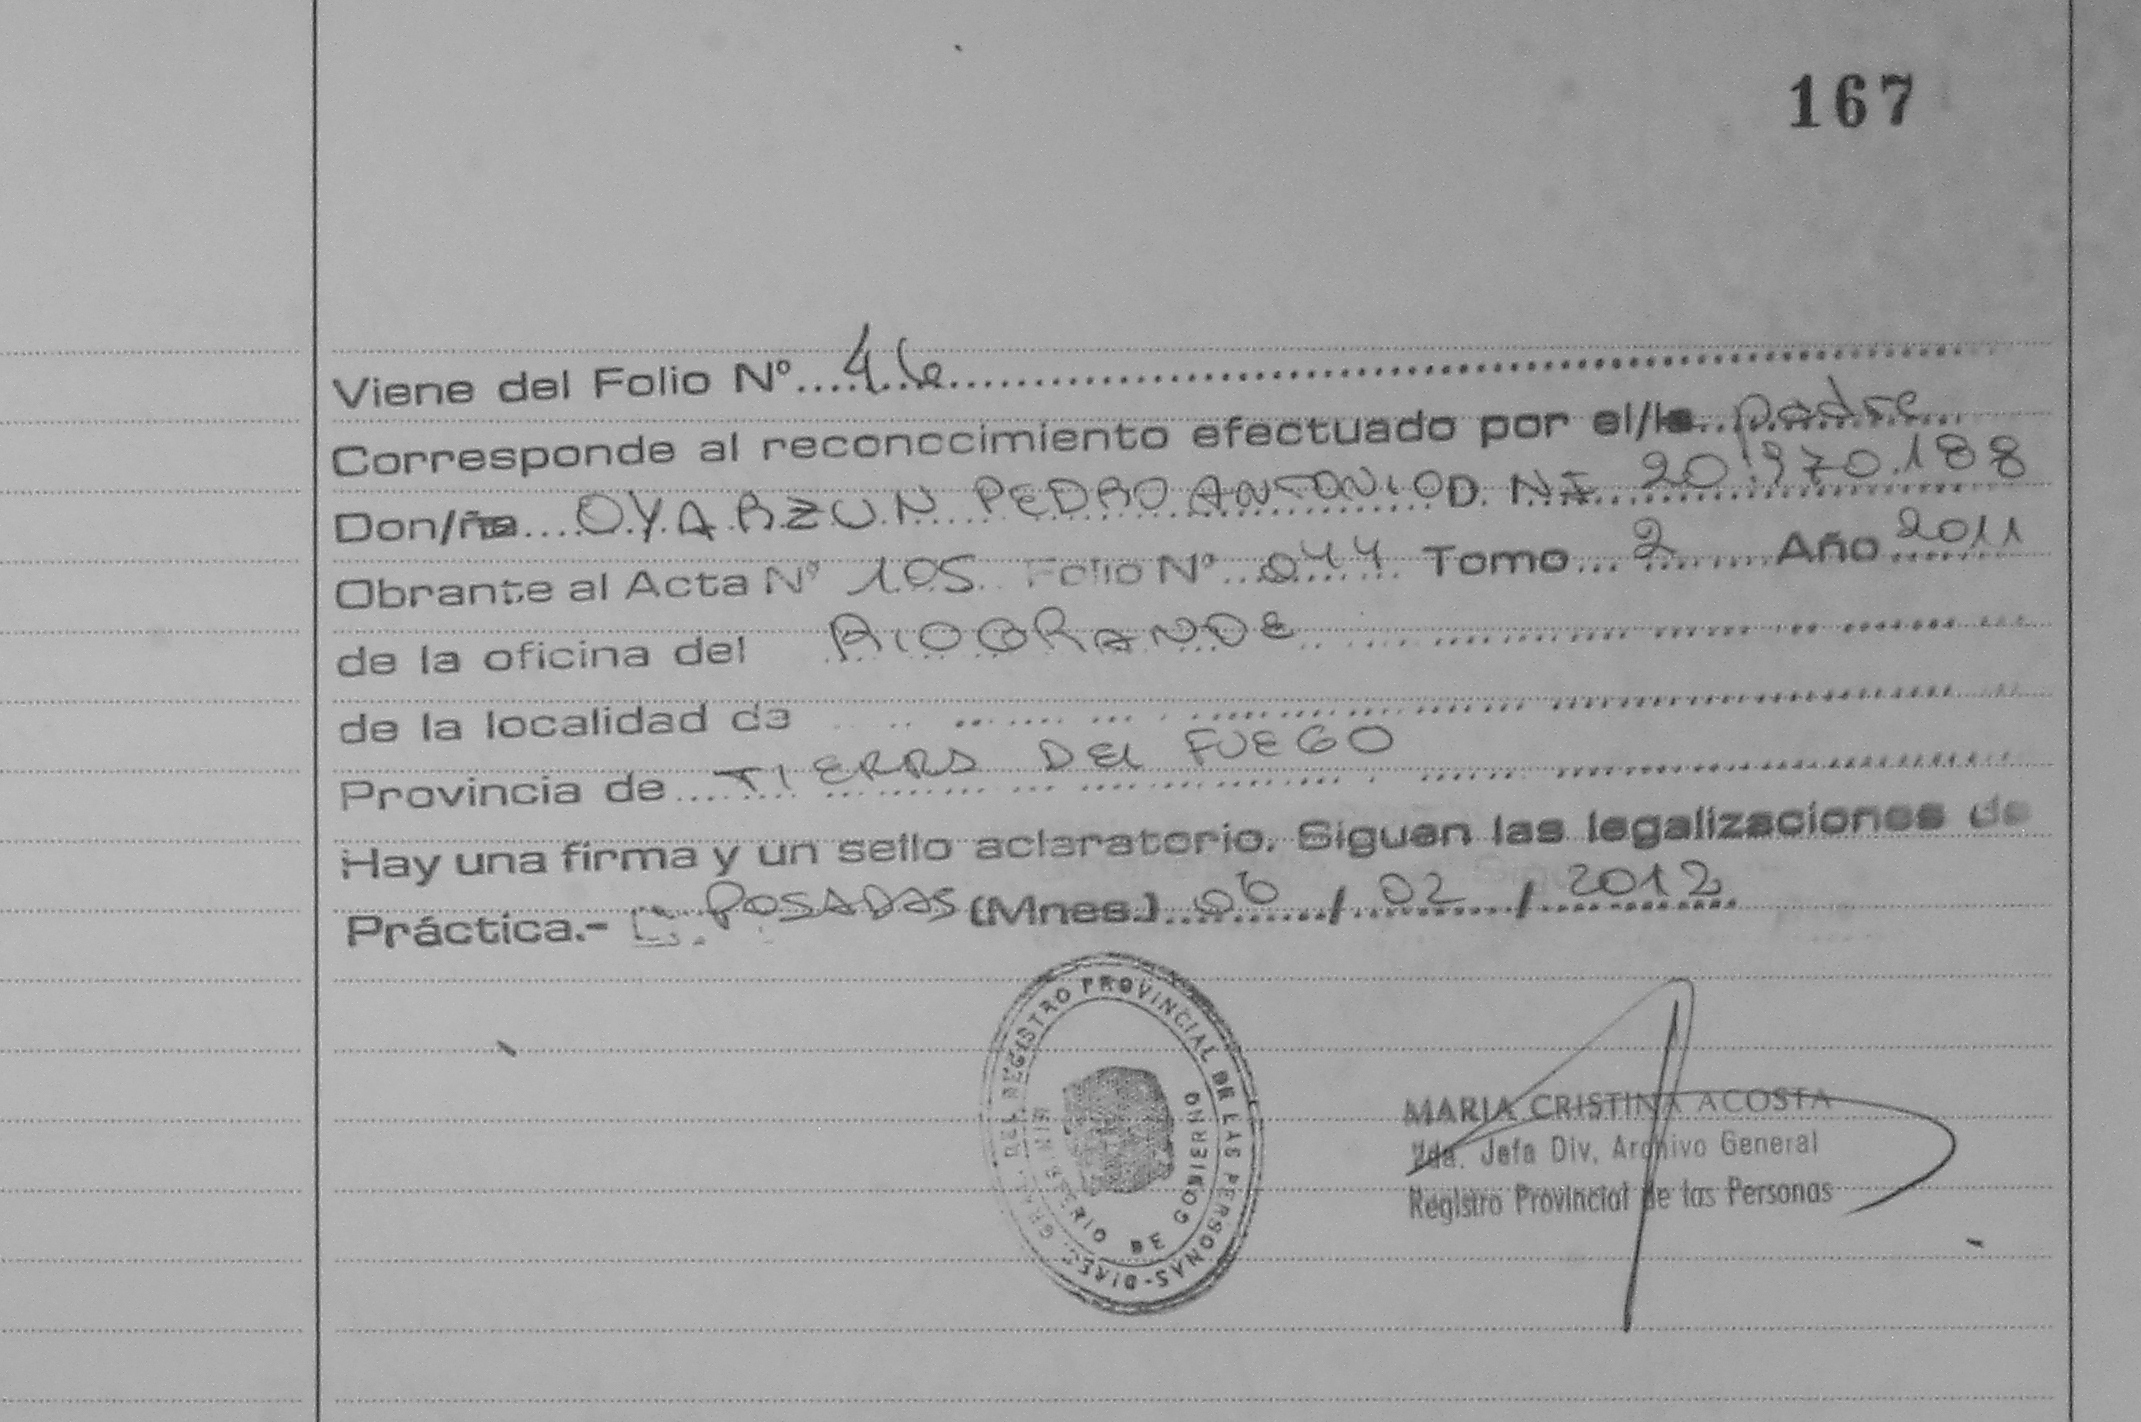 167
Viene del Folio Nº....46....
Corresponde al reconocimiento efectuado por el/la padre
Don/ña....OYARZUN PEDRO ANTONIO D. NI 20.970.188
Obrante al Acta Nº 105 Folio Nº 044 Tomo 2 Año 2011
de la oficina del RIO GRANDE
de la localidad de
Provincia de TIERRA DEL FUEGO
Hay una firma y un sello aclaratorio. Siguen las legalizaciones de
Práctica.- POSADAS (Mnes.) 06 / 02 / 2012
DIREC. GRAL. DEL REGISTRO PROVINCIAL DE LAS PERSONAS-
MINISTERIO DE GOBIERNO
MARIA CRISTINA ACOSTA
Jefa Div. Archivo General
Registro Provincial de las Personas